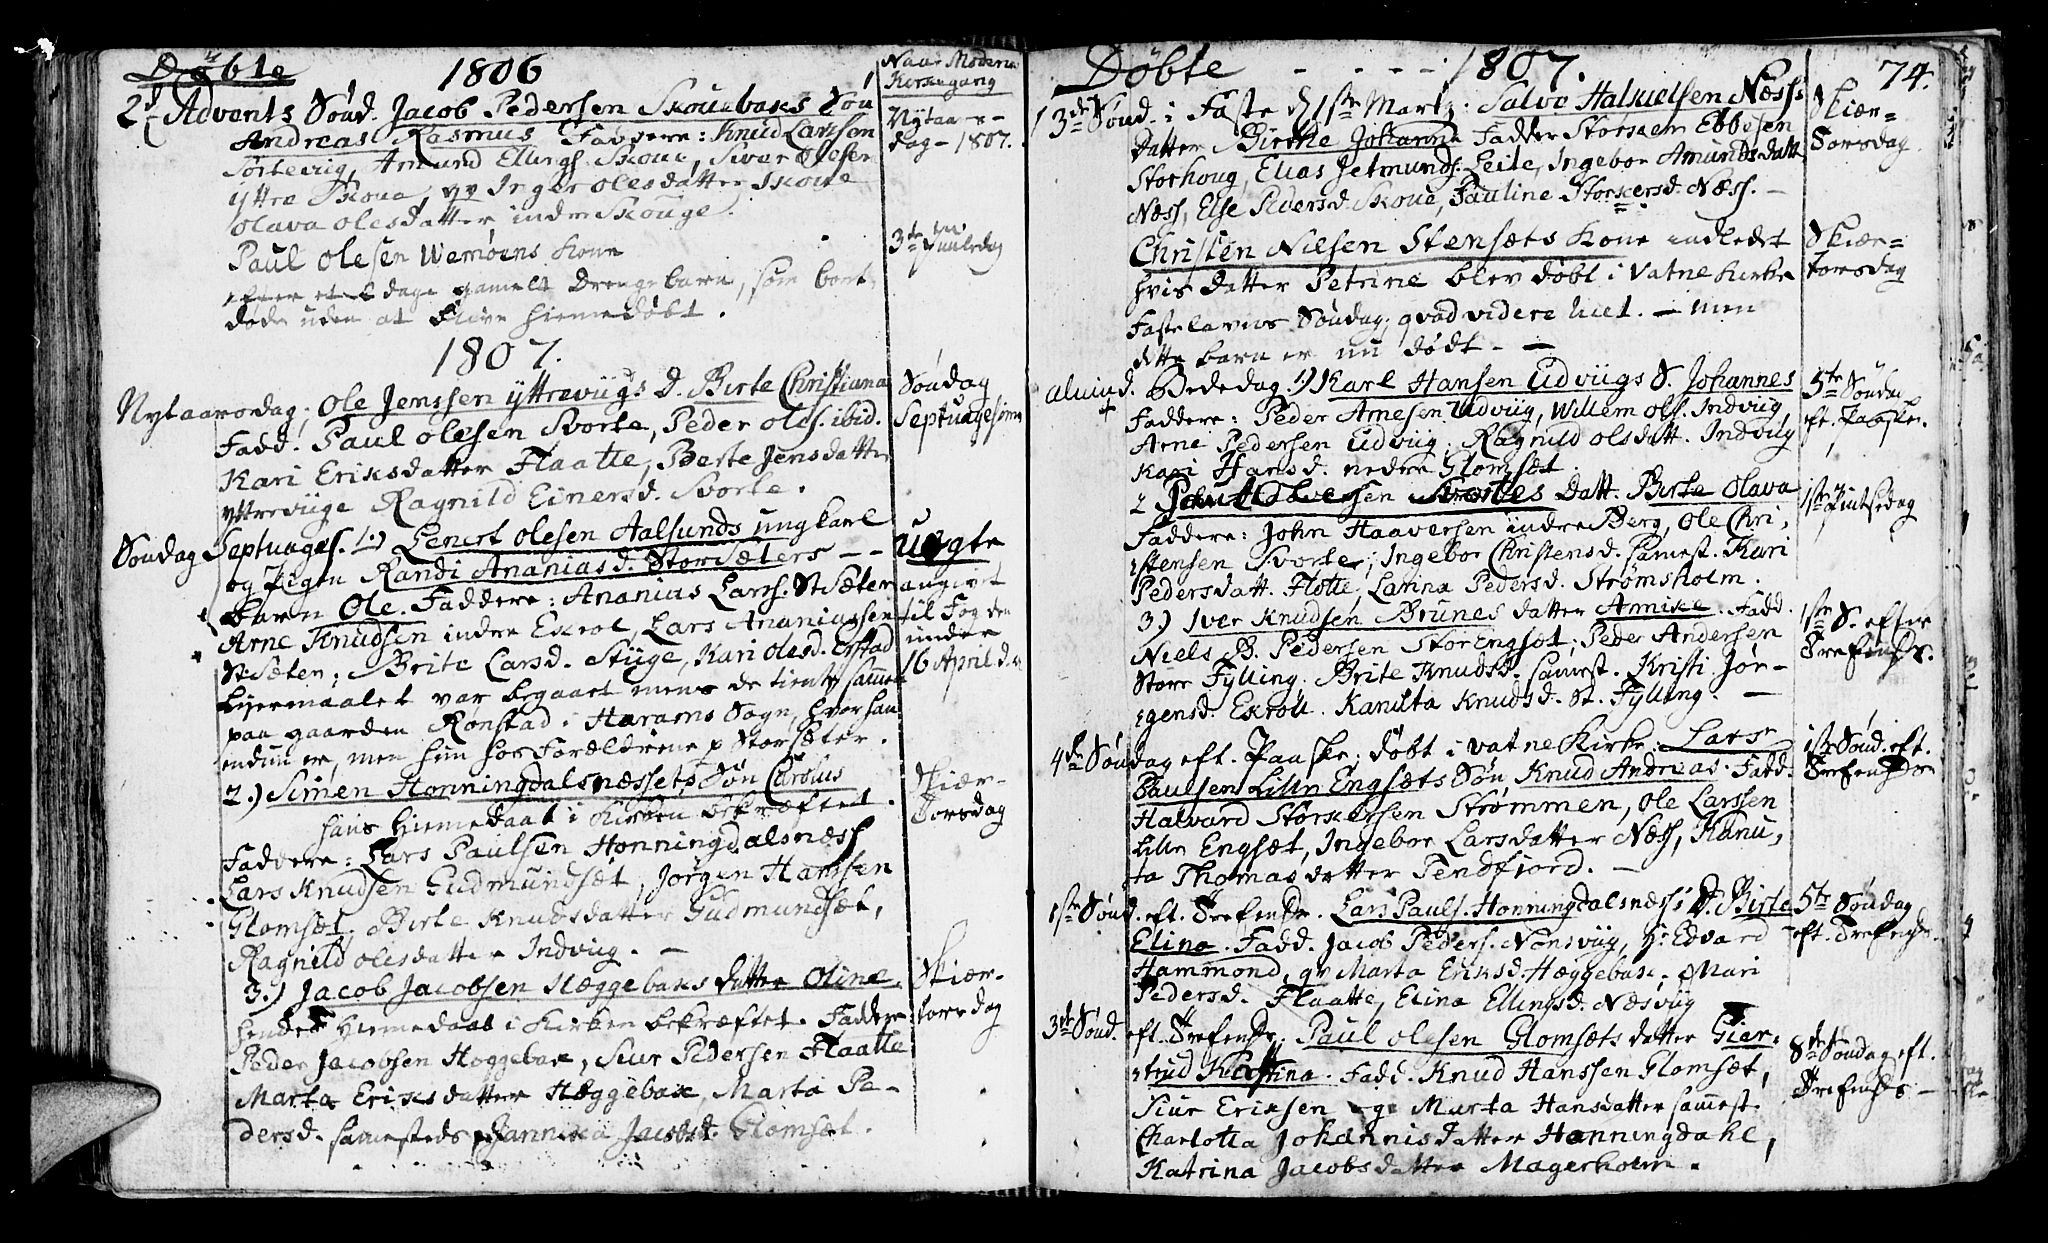 Døbte 1806
Naar Moderen
Kirkegang
2den Advents Sønd. Jacob Pedersen Skouebaks Søn
Andreas Rasmus Faddere: Knud Larssen
Sørtevug, Amund Ellings. Skoue, Siver Olesen
yttre Skoue, qv Inger olesdatter Skoue
Olava olesdatter indre Skouge.
Nytaars-
dag - 1807.
Paul Olesen Wemøens Kone
efter et dage gamelt Drengebarn, som bort
døde uden at blive hiemedøbt.
3de Juuledag
1807.
Nytaarsdag, Ole Jenssen yttreviigs D. Birte Christiana
Fadd. Paul olesen Svorte, Peder ols. ibid.
Kari Eriksdatter Flaatte, Berte Jensdatter
yttreviige Ragnild Einersd. Svorte.
Søndag
Septuagesima
Søndag Septuages. 1.) Lenert olesen Aalsunds ungkarl
og Pigen Randi Ananiasd. Storsæters --
barn Ole. Faddere: Ananias Lars. St. Sæter
Arne Knudsen indre Exrol, Lars Ananiassen
St. Sæter, Brite Larsd. Stuge, Kari olesd. Erstad
Leiermaalet var begaaet mens de tiente sammen
paa gaarden Rønstad i Harams Sogn, hvor han
endnu er, men hun hos Forældrene p Storsæter.
Uægte
angivet
til Fogden
under
16 April d. a.
2.) Simen Honningdalsnæssets Søn Carolus
hans Hiemedaab i Kirken bekræftet.
Faddere: Lars Paulsen Honningdalsnæss
Lars Knudsen Gudmundsæt, Jørgen Hanssen
Glomsæt. Birte Knudsdatter Gudmundsæt,
Ragnild olesdatter Indvug. -
Skiær-
Torsdag
3.) Jacob Jacobsen Hæggebaks datter Oline,
hendes Hiemedaab i Kirken bekræftet. Faddere
Peder Jacobsen Hoggebak, Siur Pedersen Flaatte
Marta Eriksdatter Hæggebak, Marta Pe-
dersd. samesteds Jannika Jacobsd. Glomsæt.
Skiær-
torsdag
Døbte - - - - 1807. 74.
3de Sønd. i Faste d. 1ste Marti. Salve Halkielsen Næss's
Datter Birthe Johanna Fadder Storsker Ebbesen
Storhoug, Elias Jetmunds. Leite, Ingebor Amundsdatt
Næss, Else Siversd. Skoue, Pauline Storkersd. Næss. -
Skiær-
Torsdag
Christen Nilsen Stensæts Kone indledet
hvis Datter Petrine blev døbt i Vatne Kirke
Fastelavns Søndag, qvad videre hiet. - men
dette barn er nu dødt - -
Skiær-
torsdag
almind. Bededag. 1) Karl Hansen Udviigs S. Johannes
Faddere: Peder Arnesen Udviig, Willem ols. Indviig,
Arne Pedersen Udviig. Ragnild olsdatt. Indviig
Kari Hansd. nedre Glomsæt.
5te Søndag
eft. Paaske.
2 Svortes Datt. Birte Olava
Faddere: John Haaversen indre Berg, Ole Chri,
stensen Svorte, Ingebor Christensd. samest. Kari
Pedersdatt. Flotte, Larina Pedersd. Strømsholm.
1ste Pintsedag
3.) Iver Knudsen Brunes datter Annike. Fadd.
Niels B. Pedersen Storengsæt; Peder Andersen
Store Fylling. Brite Knudsd. samest. Kristi Jør-
gensd. Exrøll. Kanutta Knudsd. St. Fylling. -
1ste S. efter
Trefenigh.
4de Søndag eft. Paaske, døbt i Vatne Kirke: Lars
Paulsen Lille Engsæts Søn Knud Andreas. Fadd.
Halvard Storkersen Strømmen, Ole Larssen
Lille Engsæt, Ingebor Larsdatter Næss, Kanu,
ta Thomasdatter Tendfjord. -
1ste Sønd. eft.
1ste Sønd. eft. Trefengh. Lars Pauls. Honningdalsnæss's D. Birte
Elina. Fadd. Jacob Peders. Nonsviig, Hr. Edvard
Hammond, qv Marta Eriksd. Hæggebak, Mari
Pedersd. Flaatte, Elina Ellingsd. Næsviig
5te Søndag
eft. Trefengh.
3die Sønd. eft. Trefengh. Paul olesen Glomsæts datter Gier-
trud Kirstina. Fadd. Knud Hanssen Glomsæt,
Siur Eriksen Marta Hansdatter samest.
Charlotta Johannisdatter Honningdahl,
Katrina Jacobsdatter Magerholm.
8de Søndag eft.
Trefengh -